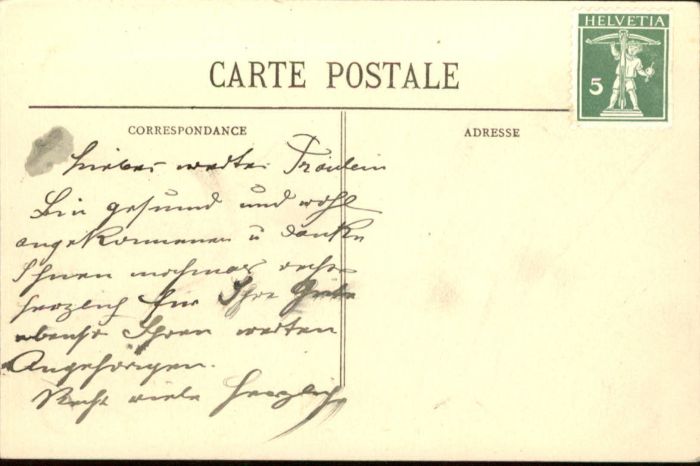 HELVETIA
5
CARTE POSTALE
CORRESPONDANCE
ADRESSE
Liebes wertes Fräulein
Bin gesund und wohl
angekommenen u danke
Ihnen nochmas recht
herzlich für Ihre Güte
ebenso Ihren werten
Angehörigen.
Recht viele herzliche